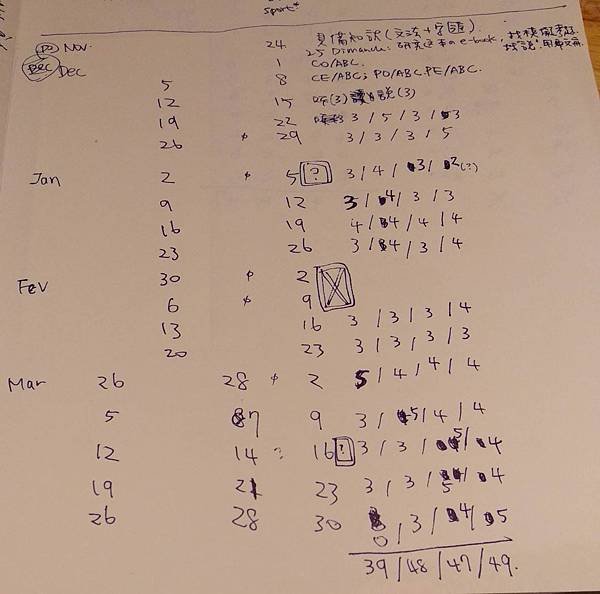 sport*
Nov. 24 具備知識(文法+字彙).
25 Dimanche: 研究這本的e-book,
Dec 1 CO/ABC.
5 8 CE/ABC; PO/ABC. PE/ABC.
12 15 听(3) 讀 說(3)
19 22 3/5/3/3
26 * 29 3/3/3/5
Jan 2 * 5 ? 3/4/3/2(?)
9 12 3/4/3/3
16 19 4/4/4/4
23 26 3/4/3/4
Fev 30 * 2
6 * 9
13 16 3/3/3/4
20 23 3/3/3/3
Mar 26 28 * 2 5/4/4/4
5 7 9 3/5/4/4
12 14 ? 16 ? 3/3/5/4
19 21 23 3/3/5/4
26 28 30 0/3/4/5
39/48/47/49.